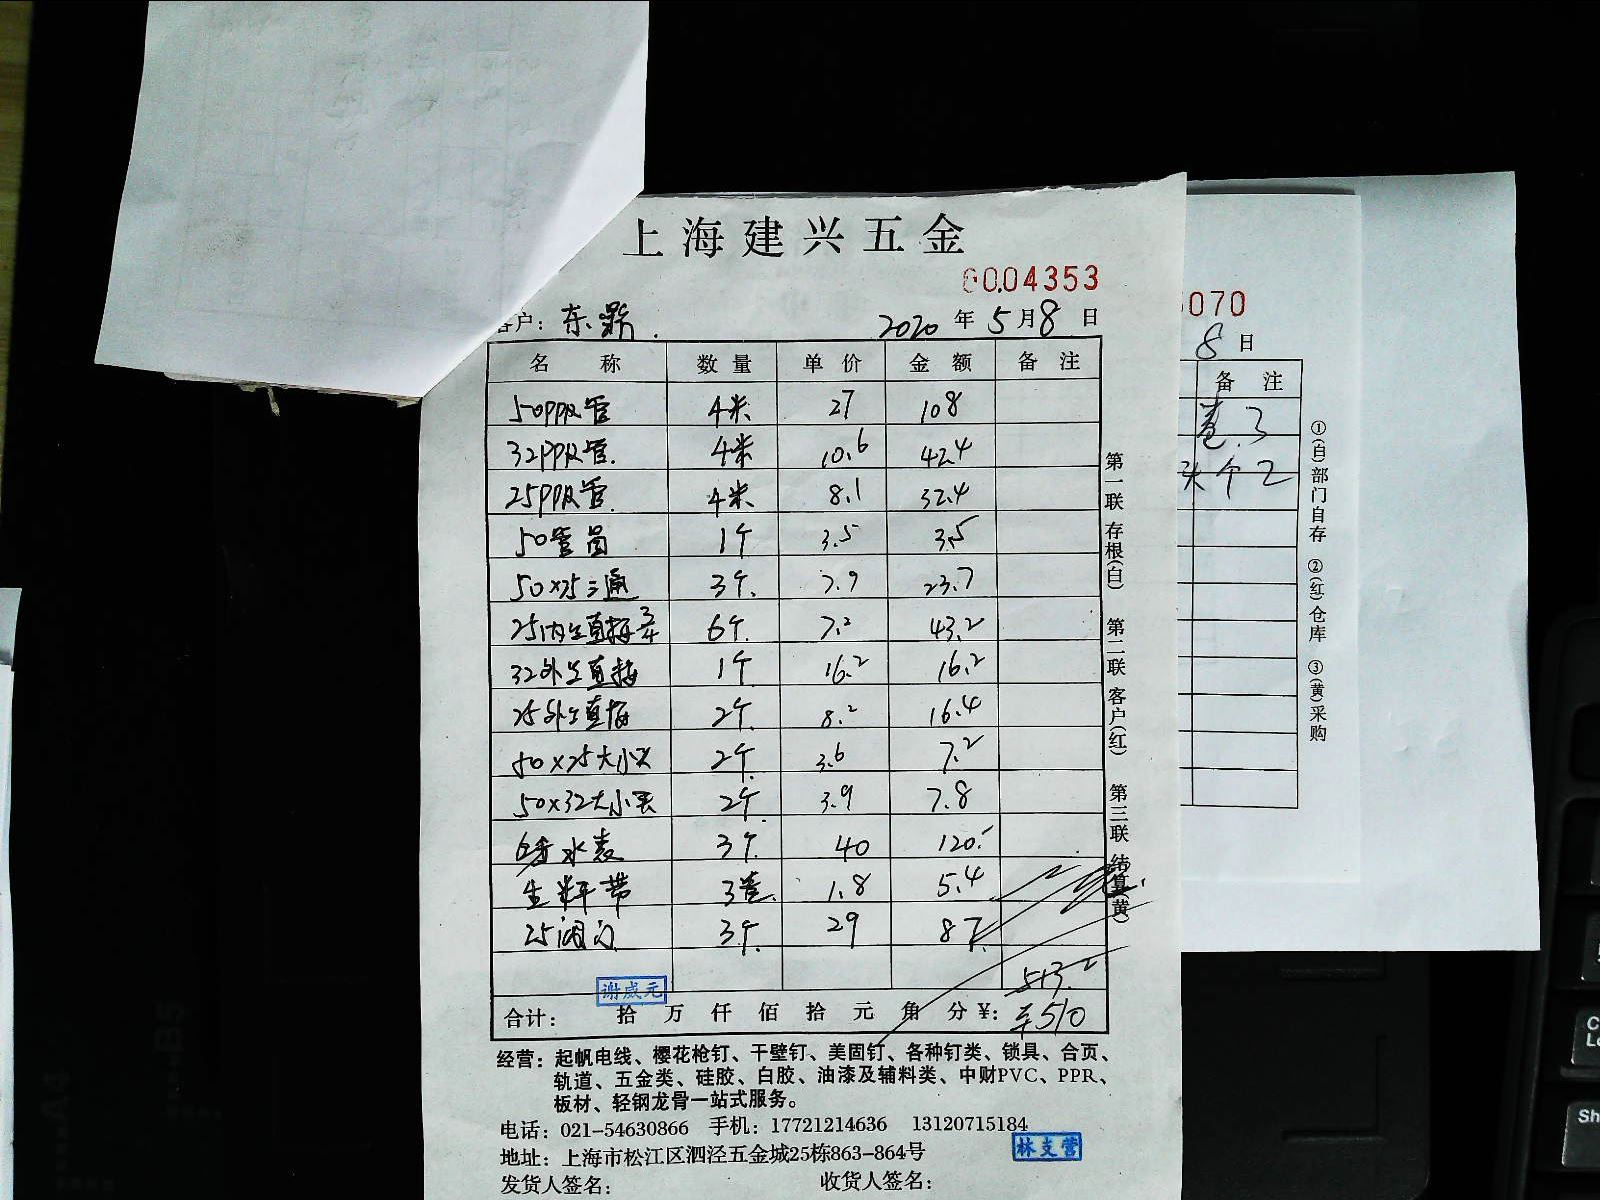 上海建兴五金
0004353
客户: 东鼎. 2020 年 5 月 8 日
名 称 数 量 单 价 金 额 备 注
50PPR管 4米 27 108
32PPR管. 4米 10.6 42.4
25PPR管. 4米 8.1 32.4
50管 1个 3.5 3.5
50×25三通 3个. 7.9 23.7
25内丝直接 3/4 6个. 7.2 43.2
32外丝直接 1个 16.2 16.2
25外丝直接 2个. 8.2 16.4
50×25大小头 2个. 3.6 7.2
50×32大小头 2个. 3.9 7.8
6分水表 3个. 40 120.
生料带 3卷. 1.8 5.4
25阀门 3个. 29 87.
谢威元
513.2
合计: 拾 万 仟 佰 拾 元 角 分 ¥: 510
第一联 存根(白) 第二联 客户(红) 第三联 结算(黄)
经营: 起帆电线、樱花枪钉、干壁钉、美固钉、各种钉类、锁具、合页、
轨道、五金类、硅胶、白胶、油漆及辅料类、中财PVC、PPR、
板材、轻钢龙骨一站式服务。
电话: 021-54630866 手机: 17721214636 13120715184
地址: 上海市松江区泗泾五金城25栋863-864号
林支营
发货人签名: 收货人签名:
070
8 日
备 注
卷.3
头个2
①(白)部门自存 ②(红)仓库 ③(黄)采购